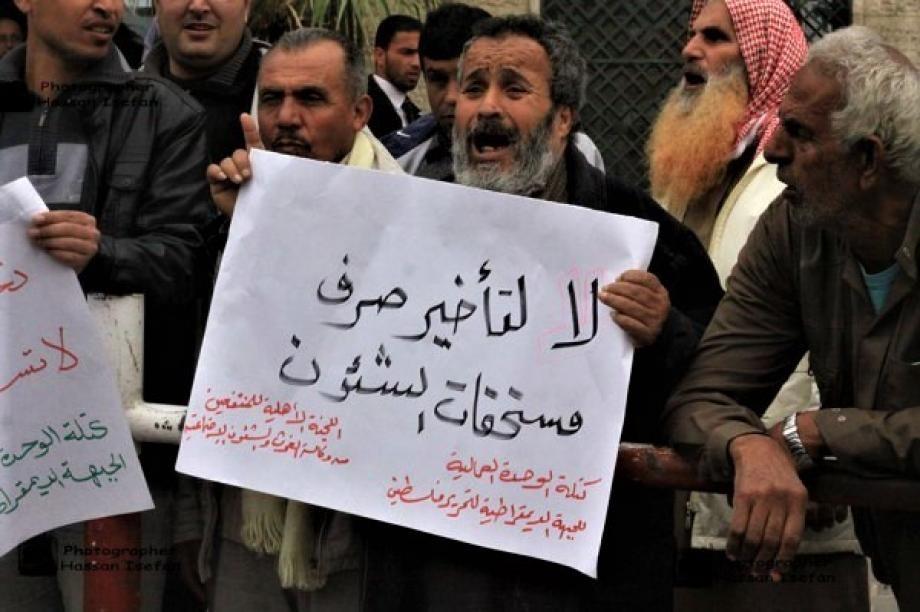 Photographer
Hassan Isefan
لا لتأخير صرف
مستحقات الشئون
اللجنة الأهلية للمنتفعين
من وكالة الغوث والشئون الاجتماعية
كتلة الوحدة العمالية
للجبهة الديمقراطية لتحرير فلسطين
كتلة الوحدة
الجبهة الديمقرا
Photographer
Hassan Isefan
Photographer
Hassan Isefan